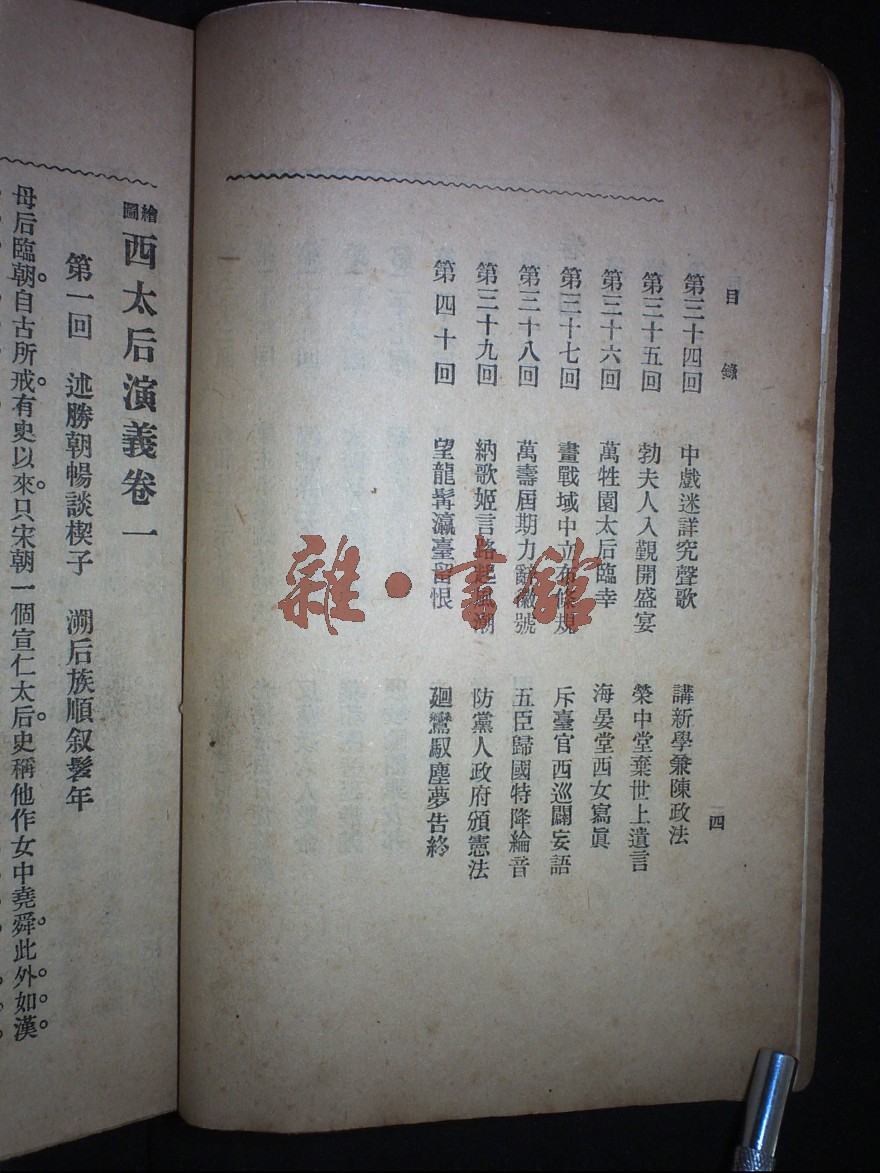 目錄
第三十四回 中戲迷詳究聲歌 講新學兼陳政法
第三十五回 勃夫人入覲開盛宴 榮中堂棄世上遺言
第三十六回 萬牲園太后臨幸 海晏堂西女寫眞
第三十七回 畫戰域中立布條規 斥臺官西巡闢妄語
第三十八回 萬壽屆期力辭徽號 五臣歸國特降綸音
第三十九回 納歌姬言路起風潮 防黨人政府頒憲法
第四十回 望龍髯瀛臺留恨 廻鸞馭塵夢告終
四
繪圖西太后演義卷一
第一回 述勝朝暢談楔子 溯后族順叙髫年
母后臨朝。自古所戒。有史以來。只宋朝一個宣仁太后。史稱他作女中堯舜。此外如漢。
雜·書館